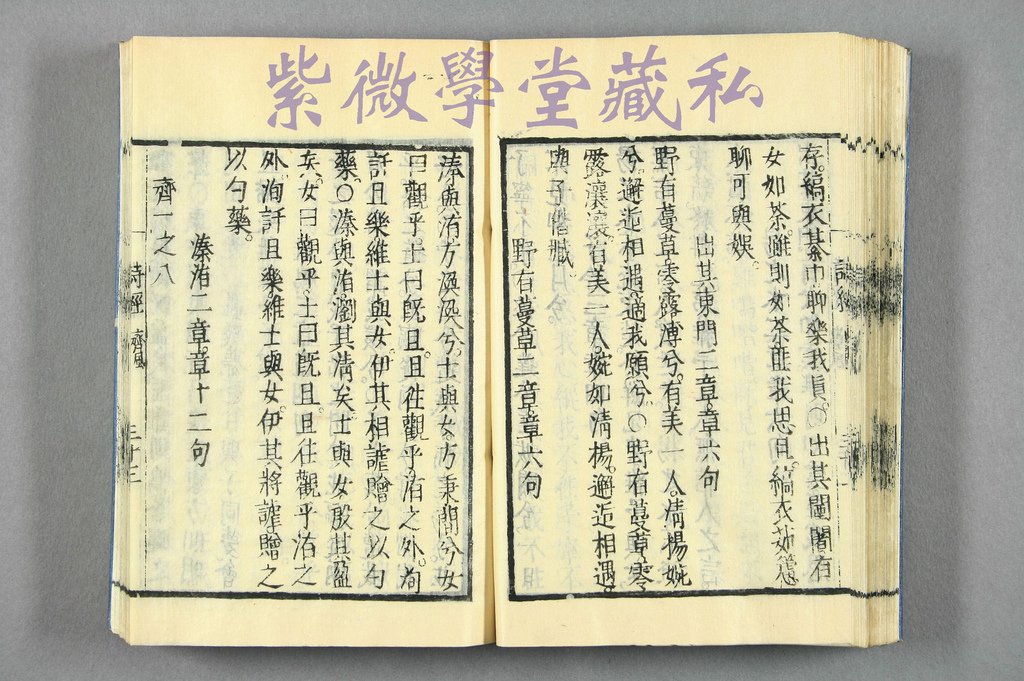 紫微學堂藏私
存縞衣綦巾聊樂我員○出其闉闍有
女如荼雖則如荼匪我思且縞衣茹藘
聊可與娛
出其東門二章章六句
野有蔓草零露漙兮有美一人清揚婉
兮邂逅相遇適我願兮○野有蔓草零
露瀼瀼有美一人婉如清揚邂逅相遇
與子偕臧
野有蔓草二章章六句
溱與洧方渙渙兮士與女方秉蕑兮女
曰觀乎士曰旣且且往觀乎洧之外洵
訏且樂維士與女伊其相謔贈之以勺
藥○溱與洧瀏其清矣士與女殷其盈
矣女曰觀乎士曰旣且且往觀乎洧之
外洵訏且樂維士與女伊其將謔贈之
以勺藥
溱洧二章章十二句
齊一之八
詩經 齊風 三十三